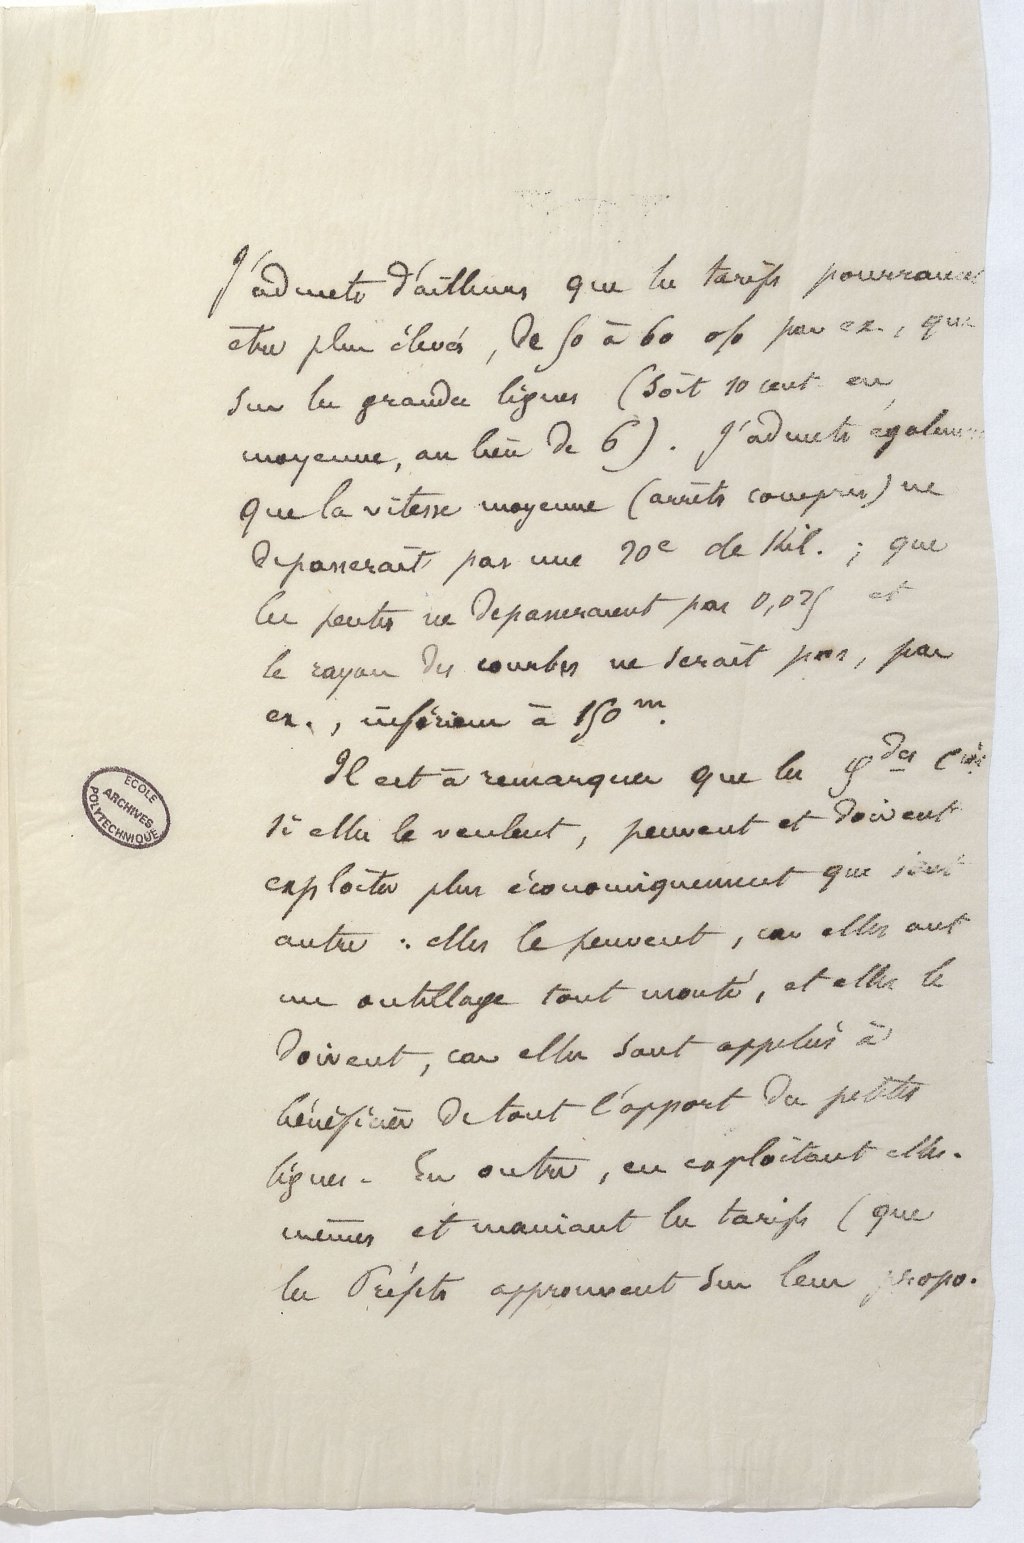 J'admets d'ailleurs que les tarifs pourraient
être plus élevés, de 50 à 60 o/o par ex., que
sur les grandes lignes (soit 10 cent en
moyenne, au lieu de 6). J'admets également
que la vitesse moyenne (arrêts compris) ne
dépasserait pas une 20e de Kil. ; que
les pentes ne dépasseraient pas 0,025 et
le rayon des courbes ne serait pas, par
ex., inférieur à 150 m.
Il est à remarquer que les gdes Cies
si elles le veulent, peuvent et doivent
exploiter plus économiquement que
autre : elles le peuvent, car elles ont
un outillage tout monté, et elles le
doivent, car elles sont appelées à
bénéficier de tout l'apport des petites
lignes. En outre, en exploitant elles-
mêmes et maniant les tarifs (que
les Préfets approuvent sur leur propo-
ECOLE
ARCHIVES
POLYTECHNIQUE